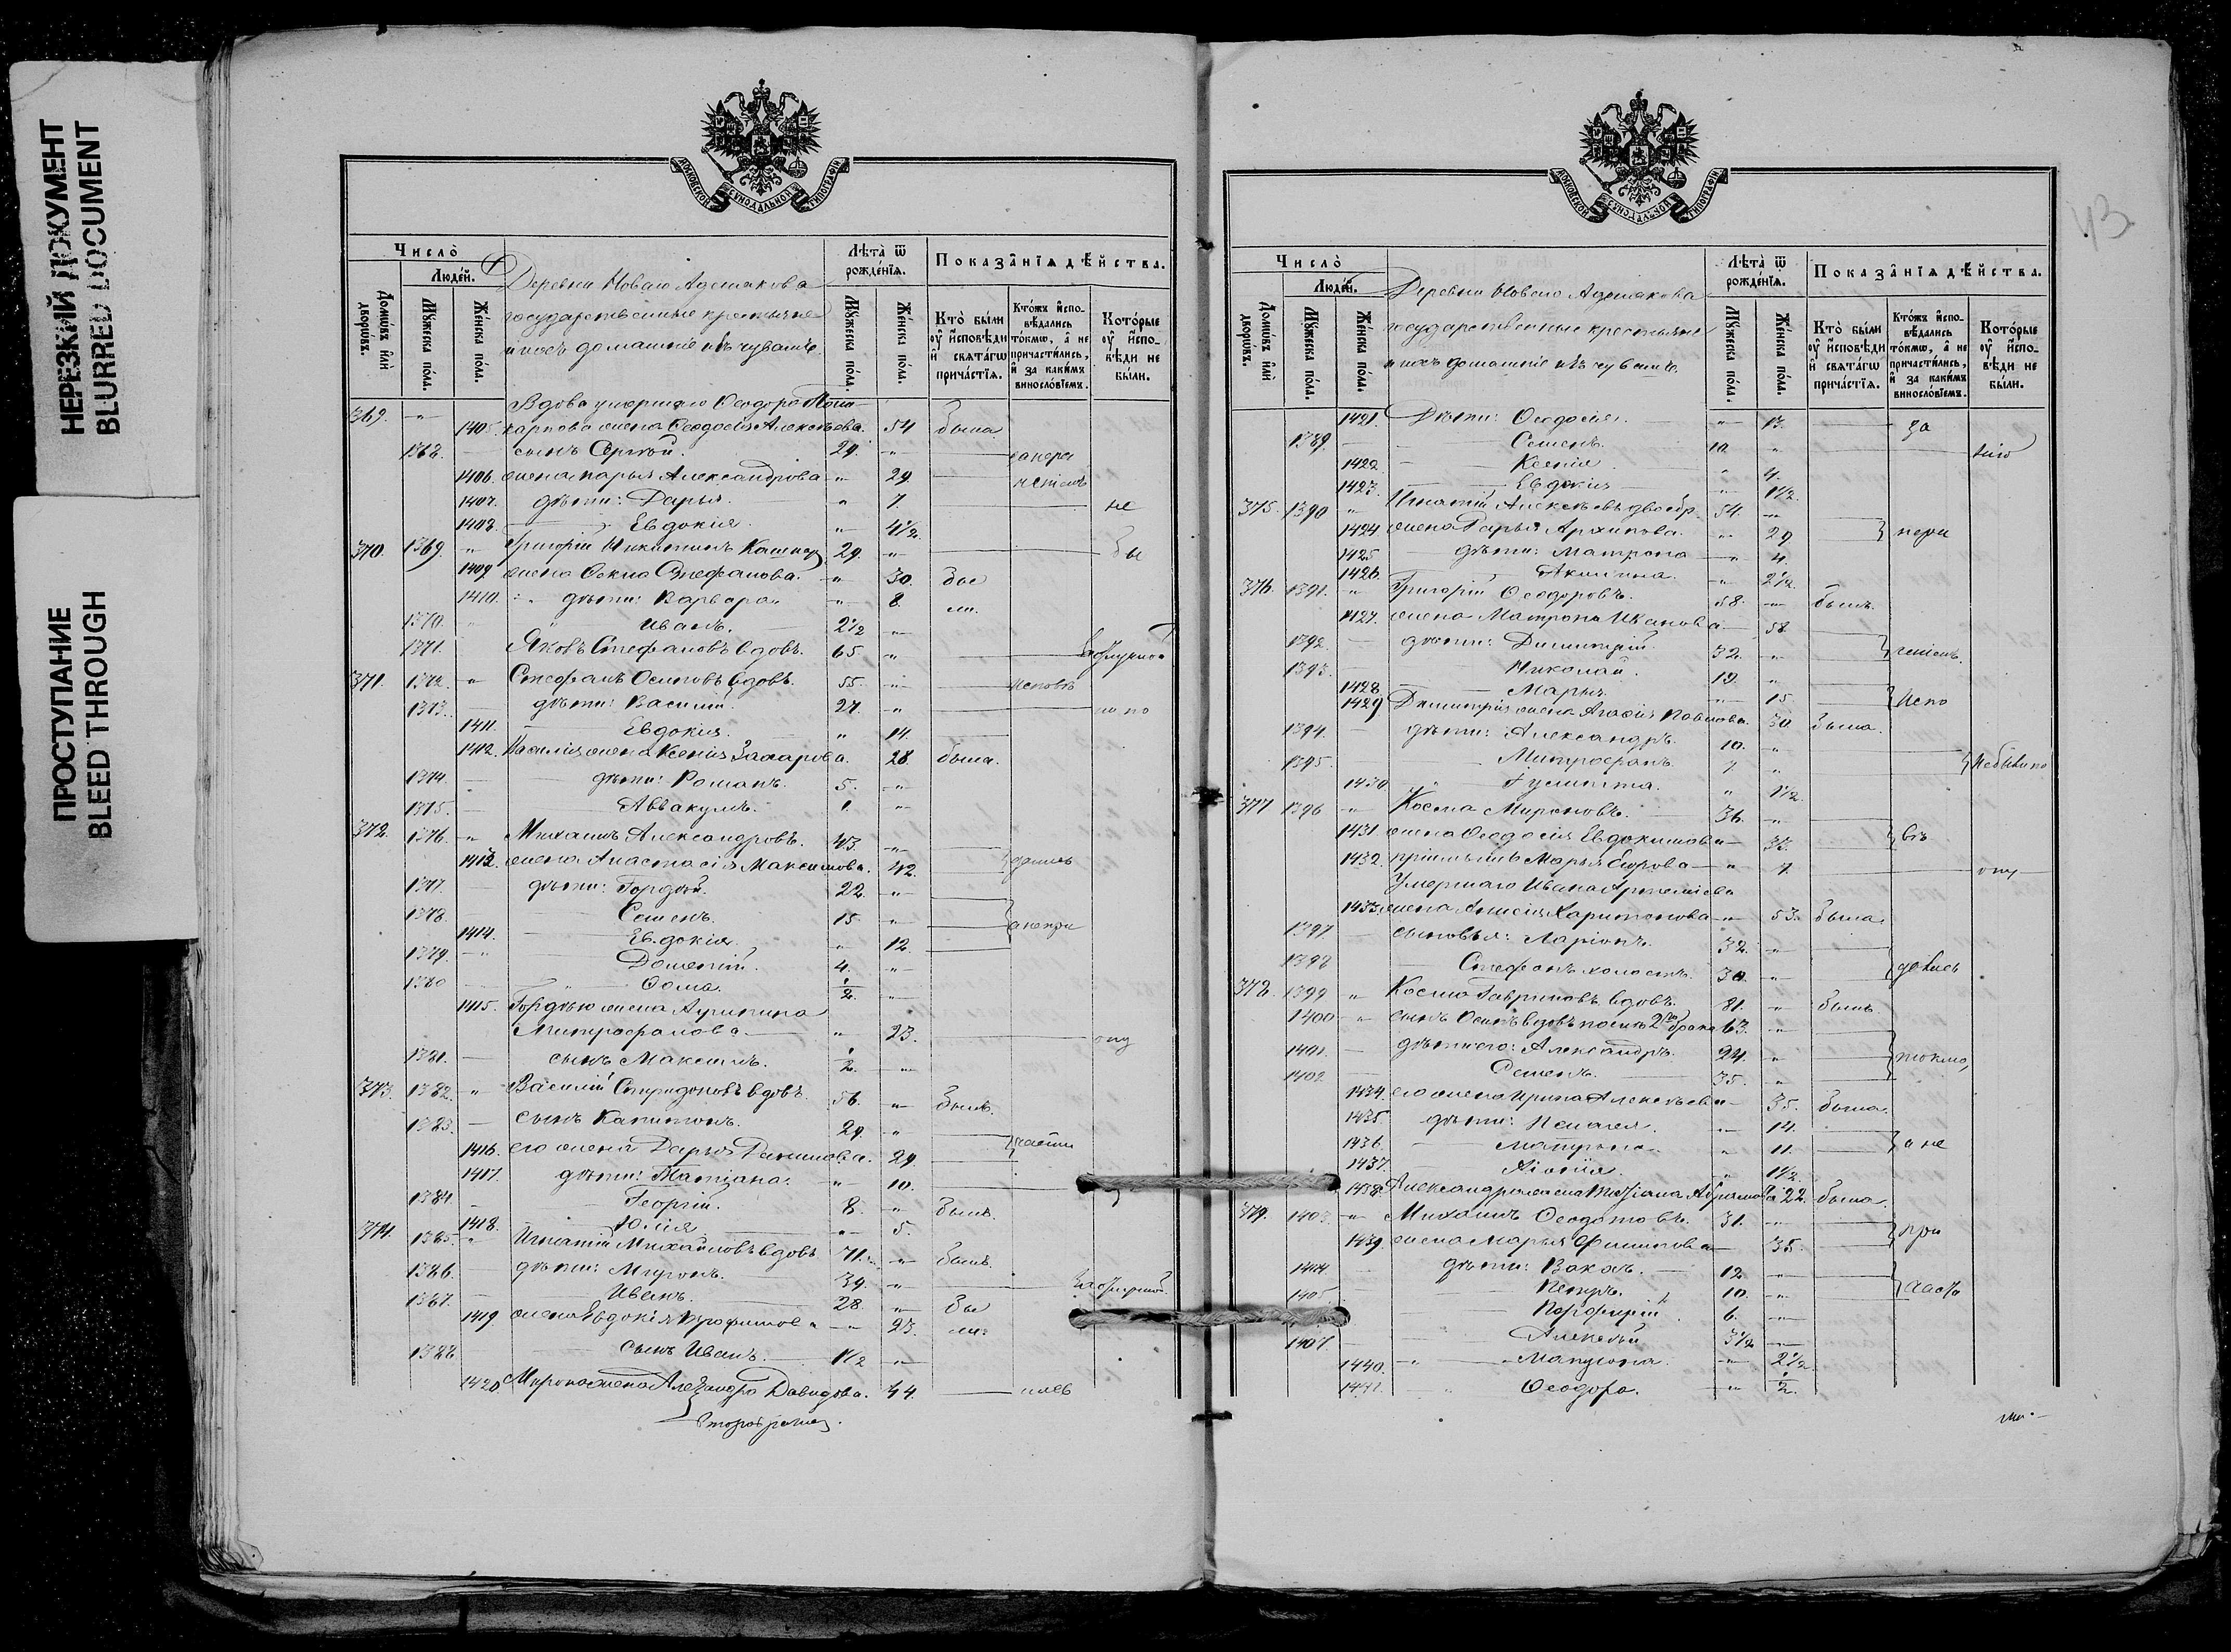 НЕРЕЗКИЙ ДОКУМЕНТ
BLURRED DOCUMENT
ПРОСТУПАНИЕ
BLEED THROUGH
МОСКОВСКОЙ СѴНОДАЛЬНОЙ ТИПОГРАФІИ
Число̀
Людей.
Домѡвъ или дворѡвъ.
Мꙋжеска пола.
Женска пола.
Деревни Новаго Адешакова
государственные крестьяне
и ихъ домашніе изъ чувашъ.
Лѣта ѿ рожденїѧ.
Мꙋжеска пола.
Женска пола.
Показанїѧ дѣйства.
Кто были оу исповѣди и свѧтагѡ причастїѧ.
Ктожъ исповѣдались токмѡ, а не причастились, и за какимъ винословїемъ.
Которые оу исповѣди не были.
369. Вдова умершаго Ѳеодора
1405. жена Ѳеодосія Алексѣева. 54 была
1368. сынъ Сергѣй. 29.
1406. жена Марья Александрова 29
1407. дѣти: Дарья. 7. не
1408. Евдокія. 4½
370. 1369 Григорій Никитинъ 29. бы
1409 жена Ѳекла Стефанова. 30. бы
1410. дѣти: Варвара 8. ли.
1370. Иванъ. 2½
1371. Яковъ Стефановъ вдовъ. 65
371. 1372. Стефанъ Осиповъ вдовъ. 55. исповѣ
1373. дѣти: Василій. 27. ли по
1411. Евдокія. 14.
1412. Василія жена Ксенія Захарова. 28. была.
1374. дѣти: Романъ. 5.
1375. Аввакумъ. 1
372. 1376. Михаилъ Александровъ. 43.
1413. жена Анастасія Максимова. 42. дались
1377. дѣти: Гордѣй. 22
1378. Семенъ. 15 а непри
1414. Евдокія. 12
1379. Дометій. 4.
1380 Ѳома. ½
1415. Гордѣя жена Агрипина
Митрофанова 23. опу
1381. сынъ Максимъ. ½
373. 1382. Василій Спиридоновъ вдовъ. 56. былъ.
1383. сынъ Капитонъ. 29.
1416. его жена Дарья Данилова. 29. части
1417. дѣти: Татіана. 10.
1384. Георгій. 8. былъ.
1418. Юлія 5.
374. 1385. Игнатій Михайловъ вдовъ 71. былъ.
1386. дѣти: Миронъ. 39.
1387. Иванъ. 28. бы
1419. жена Евдокія Трофимова 23. ли.
1388 сынъ Иванъ. 1½
1420 Мирона жена Александра Давидова. 44. лись
43
МОСКОВСКОЙ СѴНОДАЛЬНОЙ ТИПОГРАФІИ
Число̀
Людей.
Домѡвъ или дворѡвъ.
Мꙋжеска пола.
Женска пола.
Деревни Новаго Адешакова
государственные крестьяне
и ихъ домашніе изъ чувашъ.
Лѣта ѿ рожденїѧ.
Мꙋжеска пола.
Женска пола.
Показанїѧ дѣйства.
Кто были оу исповѣди и свѧтагѡ причастїѧ.
Ктожъ исповѣдались токмѡ, а не причастились, и за какимъ винословїемъ.
Которые оу исповѣди не были.
1421. Дѣти: Ѳеодосія. 13. за
1389. Семенъ. 10
1422. Ксенія 4.
1423. Евдокія 1½.
375. 1390 Игнатій Алексѣевъ двоебр. 54.
1424 жена Дарья Архипова. 29
1425 дѣти: Матрона 4.
1426. Акилина. 2½.
376. 1391. Григорій Ѳеодоровъ. 58. былъ.
1427. жена Матрона Иванова 58.
1392. дѣти: Димитрій. 32. неніемъ.
1393. Николай. 19.
1428 Марья. 15
1429 Димитрія жена Агафія Павлова. 30 была. Испо
1394. дѣти: Александръ. 10.
1395. Митрофанъ. 7 Небыли по
1430 Гулитта. 1½.
377 1396 Косма Мироновъ. 36.
1431. жена Ѳеодосія Евдокимова 32. вѣ
1432. пріемышъ Марья Егорова 7. опу
Умершаго Ивана Артеміева
1433. жена Анисія Харитонова 53. была.
1397. сыновья: Ларіонъ. 32.
1398 Стефанъ холостъ. 30. дались
378. 1399 Косма Гавриловъ вдовъ. 81. былъ.
1400 сынъ Осипъ вдовъ послѣ 2го брака 63.
1401. дѣти его: Александръ. 24. токмо,
1402 Семенъ. 35.
1434. его жена Ирина Алексѣева 35. была.
1435 дѣти: Пелагея. 14.
1436. Матрона. 11. а не
1437. 1½.
1438. Александра жена Татіана 22. была.
379. 1403. Михаилъ Ѳеодотовъ. 31.
1439. жена Марья Филипова 35. при
1404 дѣти: 12
1405 Петръ. 10. часть
Порфирій. 6.
1407 Алексѣй 3½
1440. 2½
1441. Ѳеодора. ½.